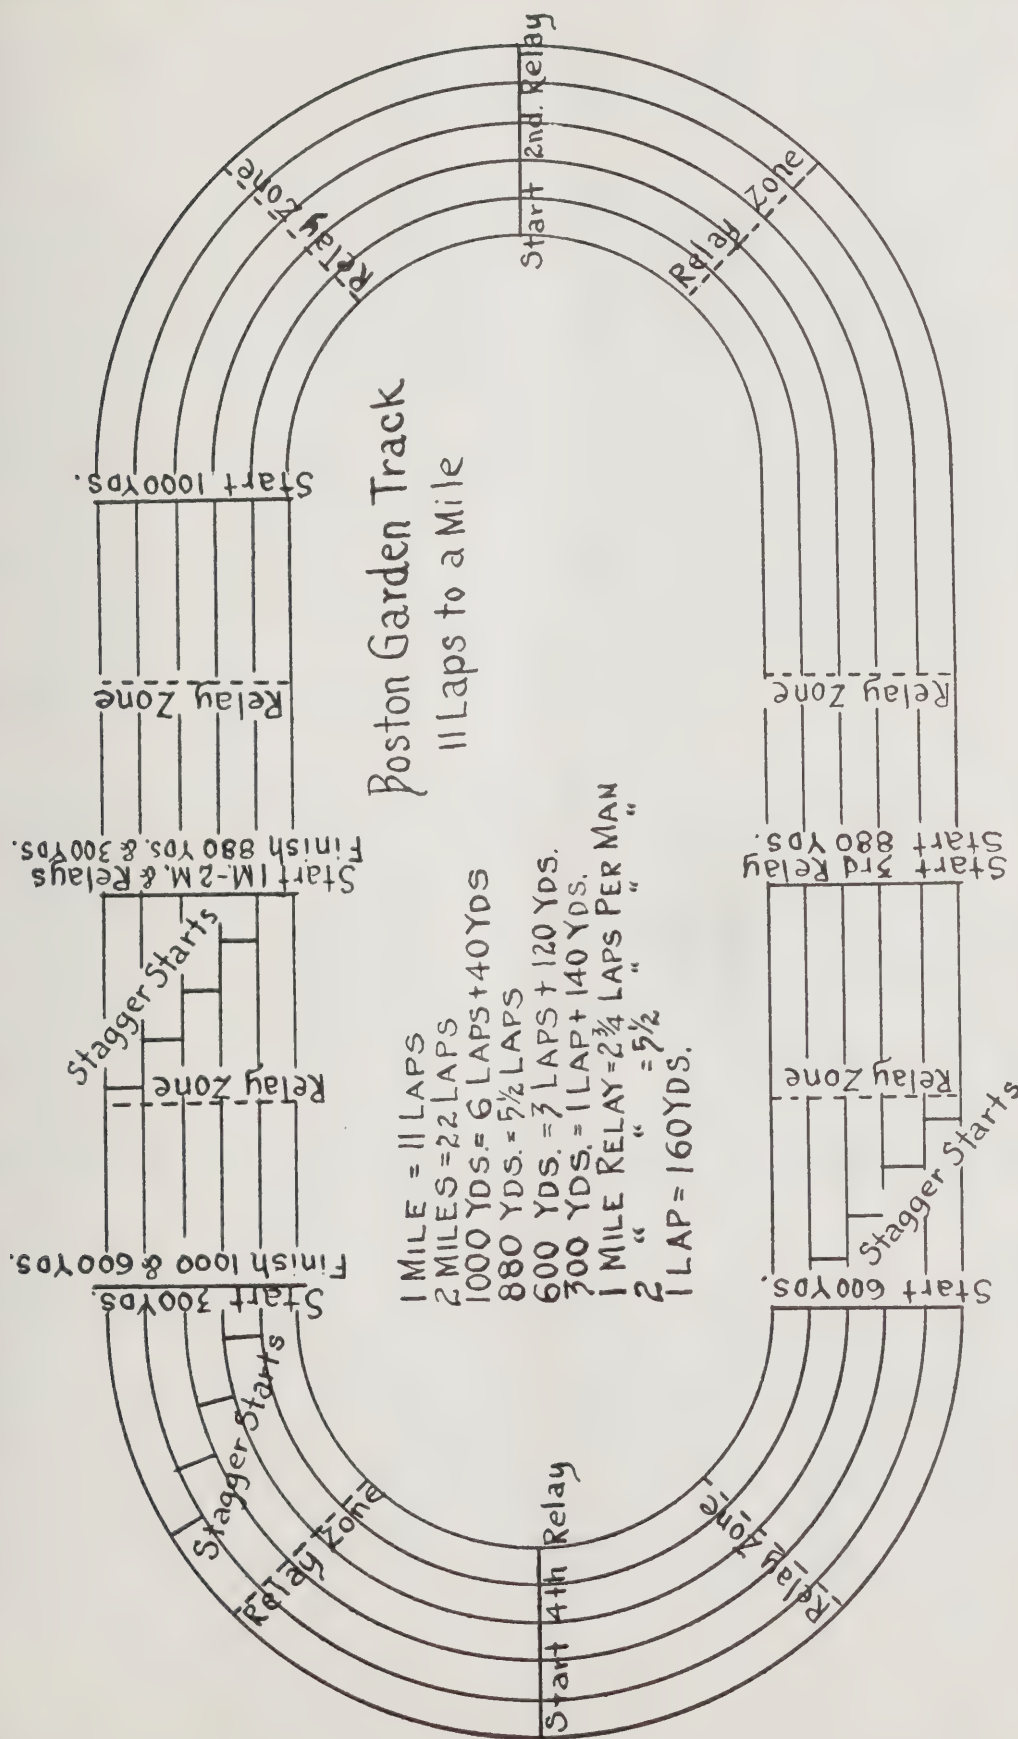 Boston Garden Track
11 Laps to a Mile
1 MILE = 11 LAPS
2 MILES = 22 LAPS
1000 YDS. = 6 LAPS + 40 YDS
880 YDS. = 5½ LAPS
600 YDS. = 3 LAPS + 120 YDS.
300 YDS. = 1 LAP + 140 YDS.
1 MILE RELAY = 2¾ LAPS PER MAN
2 " " = 5½ " " "
1 LAP = 160 YDS.
Start 2nd. Relay
Relay Zone
Relay Zone
Start 1000 YDS.
Relay Zone
Finish 880 YDS. & 300 YDS.
Start 1 M.-2 M. & Relays
Stagger Starts
Relay Zone
Finish 1000 & 600 YDS.
Start 300 YDS.
Stagger Starts
Relay Zone
Start 4th Relay
Relay Zone
Start 600 YDS.
Stagger Starts
Relay Zone
Start 3rd Relay
Start 880 YDS.
Relay Zone